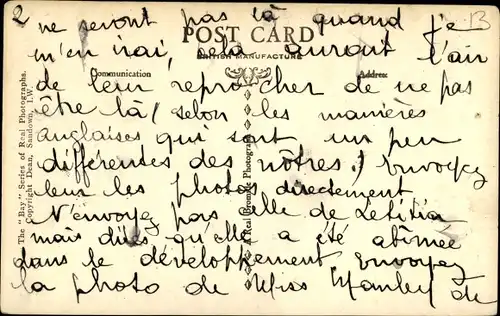 2 ne seront pas là quand je
13
POST CARD
m'en irai, cela aurait l'air
BRITISH MANUFACTURE
Communication
Address
de leur reprocher de ne pas
être là, selon les manières
anglaises qui sont un peu
différentes des nôtres.) Envoyez
leur les photos directement
N'envoyez pas celle de Letitia
mais dites qu'elle a été abîmée
dans le développement. Envoyez
la photo de Miss Manley de
The "Bay" Series of Real Photographs.
Copyright Dean, Sandown, I.W.
A Real Bromide Photograph